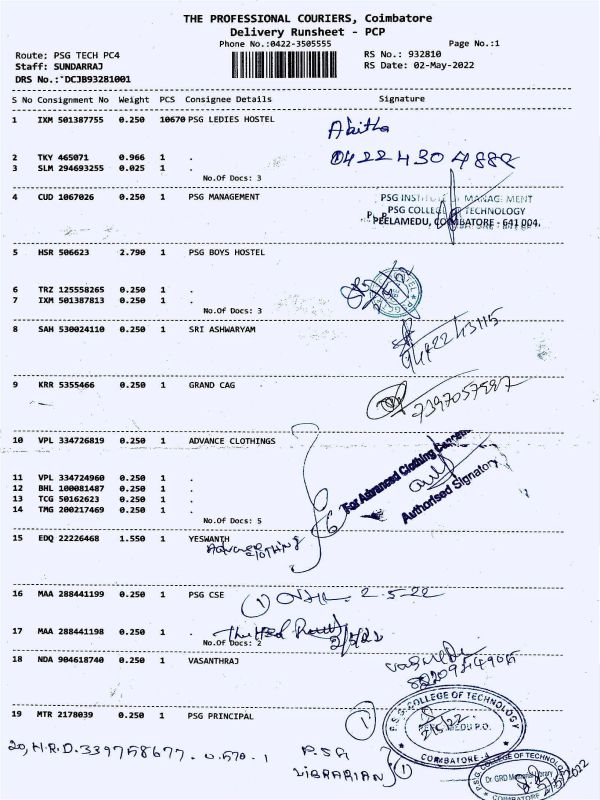 THE PROFESSIONAL COURIERS, Coimbatore
Delivery Runsheet - PCP
Phone No.:0422-3505555
Page No.:1
Route: PSG TECH PC4
RS No.: 932810
Staff: SUNDARRAJ
RS Date: 02-May-2022
DRS No.: DCJB93281001
S No Consignment No Weight PCS Consignee Details Signature
1 IXM 501387755 0.250 10670 PSG LEDIES HOSTEL
2 TKY 465071 0.966 1 .
3 SLM 294693255 0.025 1 .
No.Of Docs: 3
4 CUD 1067026 0.250 1 PSG MANAGEMENT
PSG COLLEGE TECHNOLOGY
PEELAMEDU, COIMBATORE - 641 004.
5 HSR 506623 2.790 1 PSG BOYS HOSTEL
6 TRZ 125558265 0.250 1 .
7 IXM 501387813 0.250 1 .
No.Of Docs: 3
8 SAH 530024110 0.250 1 SRI ASHWARYAM
9 KRR 5355466 0.250 1 GRAND CAG
10 VPL 334726819 0.250 1 ADVANCE CLOTHINGS
For Advanced Clothing
11 VPL 334724960 0.250 1 .
12 BHL 100081487 0.250 1 .
13 TCG 50162623 0.250 1 .
14 TMG 200217469 0.250 1 .
Authorised Signatory
No.Of Docs: 5
15 EDQ 22226468 1.550 1 YESWANTH
16 MAA 288441199 0.250 1 PSG CSE
1 2-5-22
17 MAA 288441198 0.250 1 .
No.Of Docs: 2
18 NDA 904618740 0.250 1 VASANTHRAJ
19 MTR 2178039 0.250 1 PSG PRINCIPAL
1
P.S.G. COLLEGE OF TECHNOLOGY
PEELAMEDU P.O.
COIMBATORE-4
20, H.R.D. 339758677. 0.570. 1 PSG
LIBRARIAN 1
PSG COLLEGE OF TECHNOLOGY
Dr. GRD Memorial Library
COIMBATORE